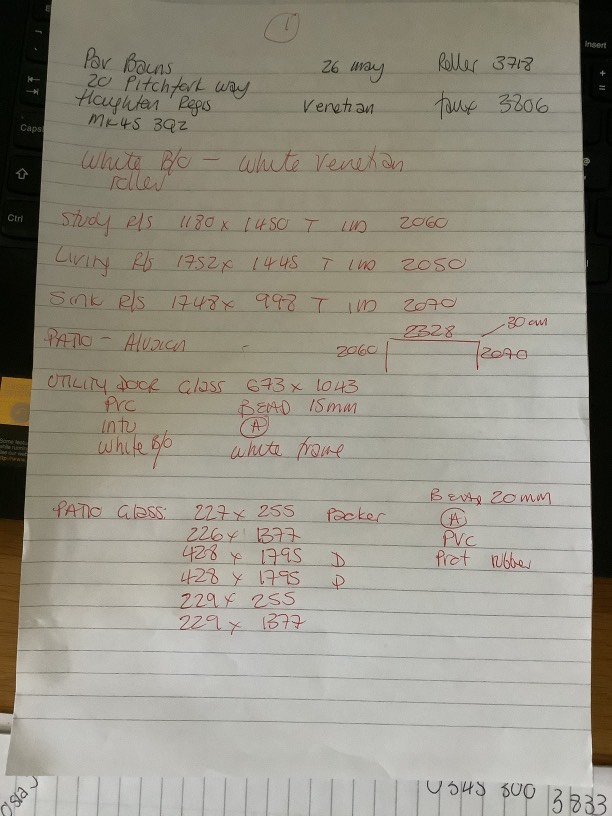 1
Pav Bains 26 May Roller 3718
20 Pitchfork way
Houghton Regis Venetian faux 3806
MK45 3QZ
White B/O - white Venetian
roller
Study R/S 1180 x 1450 T 1W 2060
Living R/S 1752 x 1445 T 1W 2050
Sink R/S 1748 x 998 T 1W 2070
2328 30cm
PATIO - 2060 2070
UTILITY DOOR Glass 673 x 1043
PVC BEAD 15mm
intu A
White B/O white frame
BEAD 20mm
PATIO Glass: 227 x 255 Packer A
226 x 1377 PVC
428 x 1795 D Prot rubber
428 x 1795 D
229 x 255
229 x 1377
Caps
Ctrl
Insert
0345 800
3833